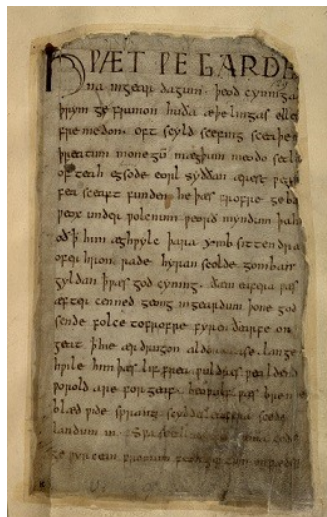 HǷÆT ǷE GARDE
na in gear dagum. þeod cyninga
þrym ge frunon huða æþelingas elle
fremedon. oft scyld scefing sceaþe
þreatum monegū mægþum meodo setl
of teah egsode eorl syððan ærest ƿear
fea sceaft funden he þæs frofre geba
ƿeox under ƿolcnum ƿeorð myndum þah
oð ꝥ him æghƿylc þara ymb sittendra
ofer hron rade hyran scolde gomban
gyldan ꝥ ƿæs god cyning. ðæm eafera ƿæs
æfter cenned geong in geardum þone god
sende folce to frofre fyren ðearfe on
geat ꝥ hie ær drugon aldor ase. lange
hƿile him þæs lif frea ƿuldres ƿealdend
ƿorold are for geaf. beoƿulf ƿæs breme
blæd ƿide sprang scyldes eafera scede
landum in. Sƿa sceal uma gode
ge ƿyrcean fromum feoh giftum on fæder